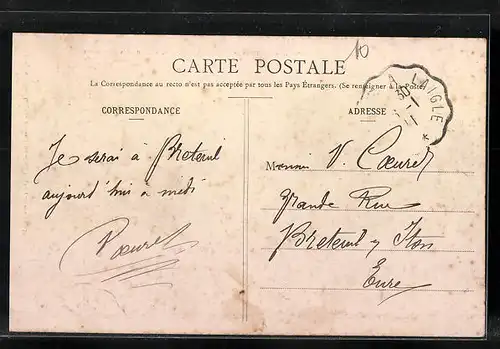 10
CARTE POSTALE
La Correspondance au recto n'est pas acceptée par tous les Pays Étrangers. (Se renseigner à la Poste)
A LAIGLE
CORRESPONDANCE
ADRESSE
Je serai à Breteuil
aujourd'hui à midi
Monsieur V. Coeuret
Grande Rue
Breteuil s/ Iton
Eure